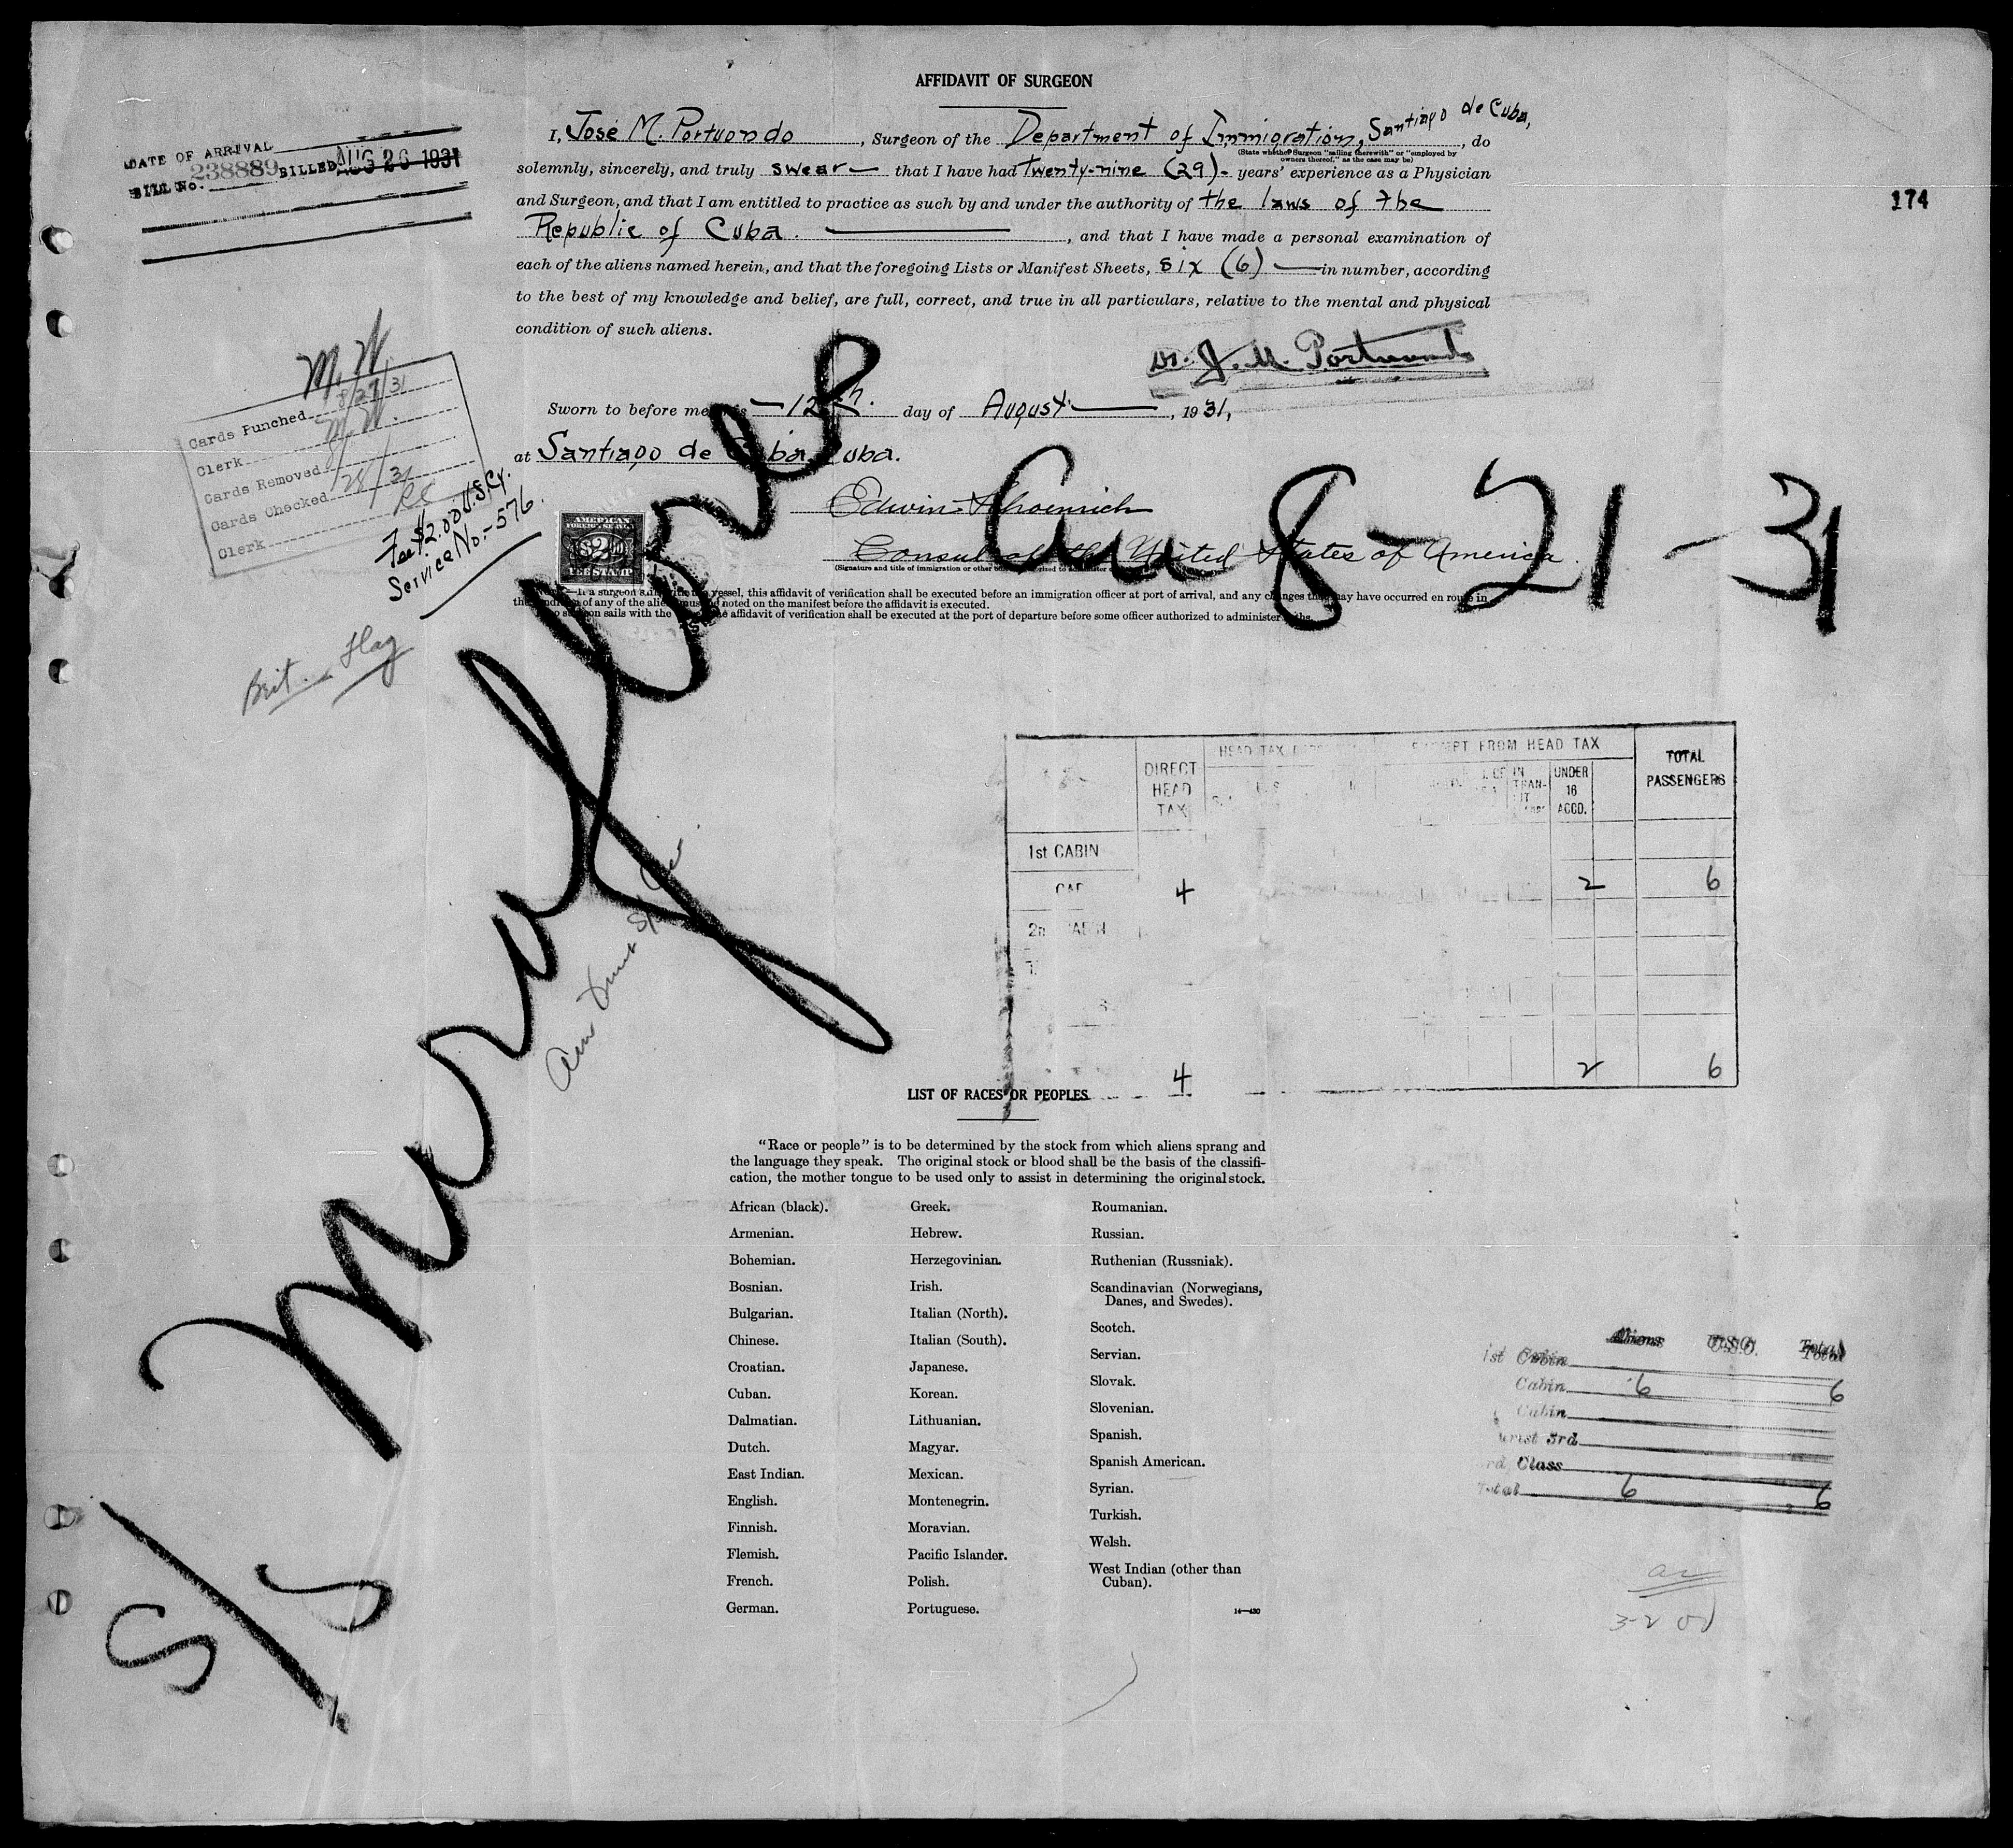 AFFIDAVIT OF SURGEON
I, José M. Portuondo, Surgeon of the Department of Immigration, Santiago de Cuba, do
(State whether Surgeon "sailing therewith" or "employed by
owners thereof," as the case may be)
solemnly, sincerely, and truly swear — that I have had Twenty-nine (29) - years' experience as a Physician
and Surgeon, and that I am entitled to practice as such by and under the authority of the laws of the
Republic of Cuba. —, and that I have made a personal examination of
each of the aliens named herein, and that the foregoing Lists or Manifest Sheets, six (6) — in number, according
to the best of my knowledge and belief, are full, correct, and true in all particulars, relative to the mental and physical
condition of such aliens.
Dr. J. M. Portuondo
Sworn to before me — 12th. day of August —, 1931,
at Santiago de Cuba, Cuba.
Edwin Schoenrich
Consul of the United States of America.
DATE OF ARRIVAL
BILL No. 238889 BILLED AUG 26 1931
174
M.W.
Cards Punched 8/27/31
Clerk M.W.
Cards Removed
Cards Checked 8/28/31
Clerk
Fee $2.00 U.S.Cy.
Service No.- 576.
Brit. Flag
AMERICAN
FOREIGN SERVICE
$2.00
FEE STAMP
If a surgeon sails with the vessel, this affidavit of verification shall be executed before an immigration officer at port of arrival, and any changes that may have occurred en route in
the condition of any of the aliens must be noted on the manifest before the affidavit is executed.
If no surgeon sails with the vessel, the affidavit of verification shall be executed at the port of departure before some officer authorized to administer oaths.
8-21-31
S/S
DIRECT HEAD TAX
HEAD TAX
EXEMPT FROM HEAD TAX
IN TRANSIT
UNDER 16 ACCD.
TOTAL PASSENGERS
1st CABIN
CAB 4 2 6
2nd CABIN
4 2 6
LIST OF RACES OR PEOPLES
"Race or people" is to be determined by the stock from which aliens sprang and
the language they speak. The original stock or blood shall be the basis of the classifi-
cation, the mother tongue to be used only to assist in determining the original stock.
African (black).
Armenian.
Bohemian.
Bosnian.
Bulgarian.
Chinese.
Croatian.
Cuban.
Dalmatian.
Dutch.
East Indian.
English.
Finnish.
Flemish.
French.
German.
Greek.
Hebrew.
Herzegovinian.
Irish.
Italian (North).
Italian (South).
Japanese.
Korean.
Lithuanian.
Magyar.
Mexican.
Montenegrin.
Moravian.
Pacific Islander.
Polish.
Portuguese.
Roumanian.
Russian.
Ruthenian (Russniak).
Scandinavian (Norwegians,
Danes, and Swedes).
Scotch.
Servian.
Slovak.
Slovenian.
Spanish.
Spanish American.
Syrian.
Turkish.
Welsh.
West Indian (other than
Cuban).
14—430
Aliens U.S.C. Total
1st Cabin
Cabin 6 6
Cabin
Tourist 3rd
3rd Class
Total 6 6